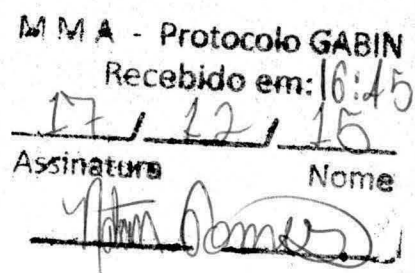 MMA - Protocolo GABIN
Recebido em: 16:45
17 / 12 / 15
Assinatura Nome